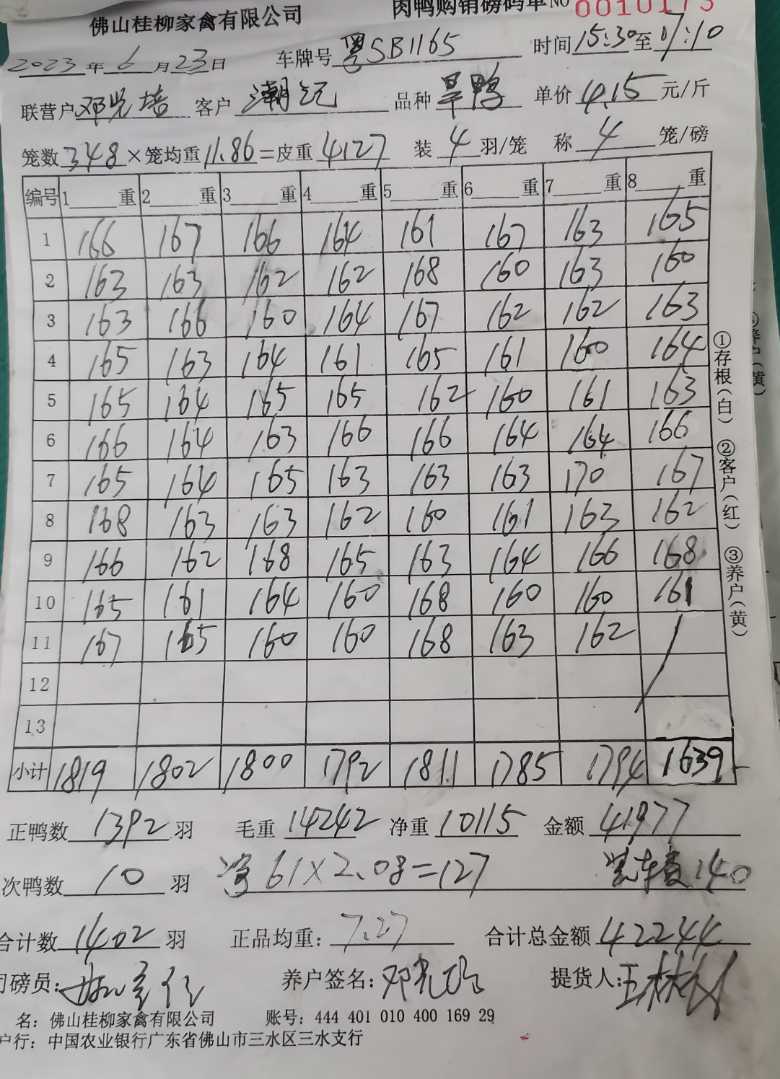 佛山桂柳家禽有限公司 肉鸭购销磅码单 No 0010173
2023年6月23日 车牌号 粤SB1165 时间15:30至17:10
联营户 客户 潮记 品种 旱鸭 单价 4.15 元/斤
笼数 348 ×笼均重 11.86 =皮重 4127 装 4 羽/笼 称 4 笼/磅
编号 1 重 2 重 3 重 4 重 5 重 6 重 7 重 8 重
1 166 167 166 164 161 167 163 165
2 163 163 162 162 168 160 163 160
3 163 166 160 164 167 162 162 163
4 165 163 164 161 165 161 160 164
5 165 164 165 165 162 160 161 163
6 166 164 163 166 166 164 164 166
7 165 164 165 163 163 163 170 167
8 168 163 163 162 160 161 163 162
9 166 162 168 165 163 164 166 168
10 165 161 164 160 168 160 160 161
11 167 165 160 160 168 163 162
12
13
小计 1819 1802 1800 1792 1811 1785 1794 1639
①存根(白) ②客户(红) ③养户(黄)
正鸭数 1392 羽 毛重 14242 净重 10115 金额 41977
次鸭数 10 羽 61×2.08=127 140
合计数 1402 羽 正品均重: 7.27 合计总金额 42244
司磅员: 养户签名: 提货人:
名: 佛山桂柳家禽有限公司 账号: 444 401 010 400 169 29
户行: 中国农业银行广东省佛山市三水区三水支行